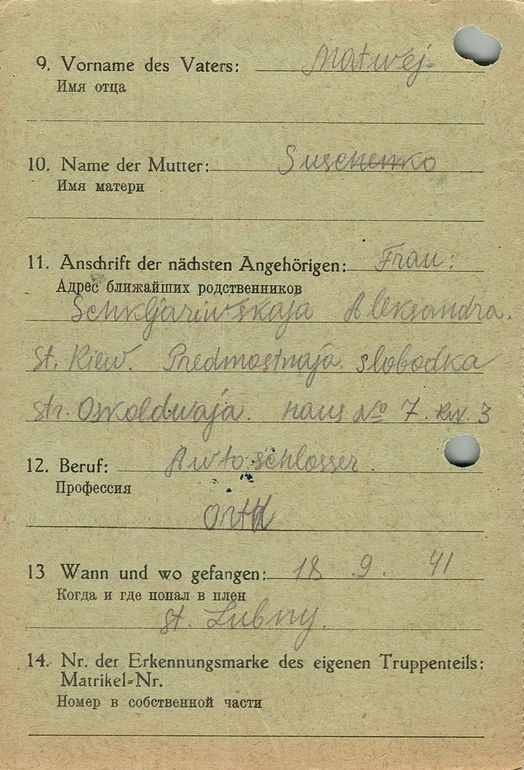 9. Vorname des Vaters: Matwej
Имя отца
10. Name der Mutter: Suschenko
Имя матери
11. Anschrift der nächsten Angehörigen: Frau:
Адрес ближайших родственников
Schkljariwskaja Aleksandra.
St. Kiew. Predmostnaja slobodka
str. Oskoldwaja. Haus № 7. kw. 3
12. Beruf: Awtoschlosser.
Профессия
13 Wann und wo gefangen: 18 . 9 . 41
Когда и где попал в плен
st. Lubny.
14. Nr. der Erkennungsmarke des eigenen Truppenteils:
Matrikel=Nr.
Номер в собственной части